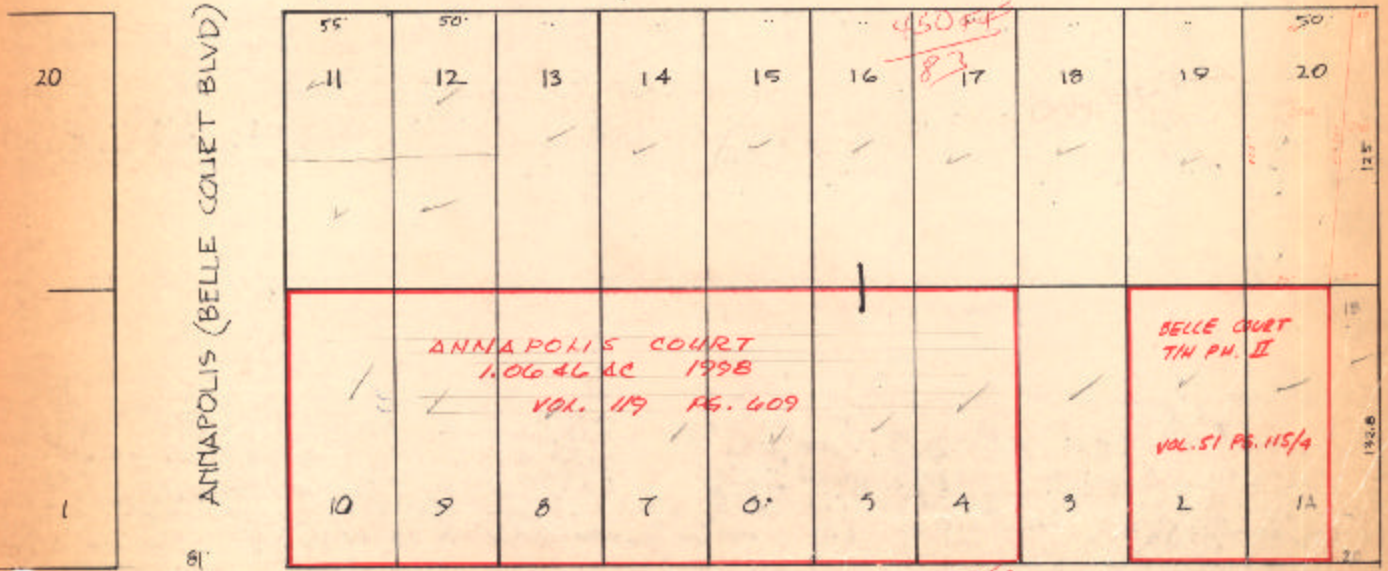 20
1
ANNAPOLIS (BELLE COURT BLVD)
81'
55' 50' .. .. .. .. 50'
450 FF
83
11 12 13 14 15 16 17 18 19 20
125
ANNAPOLIS COURT
1.0646 AC 1998
VOL. 119 PG. 609
BELLE COURT
T/H PH. II
VOL. 51 PG. 115/4
132.8
10 9 8 7 6 5 4 3 2 1A